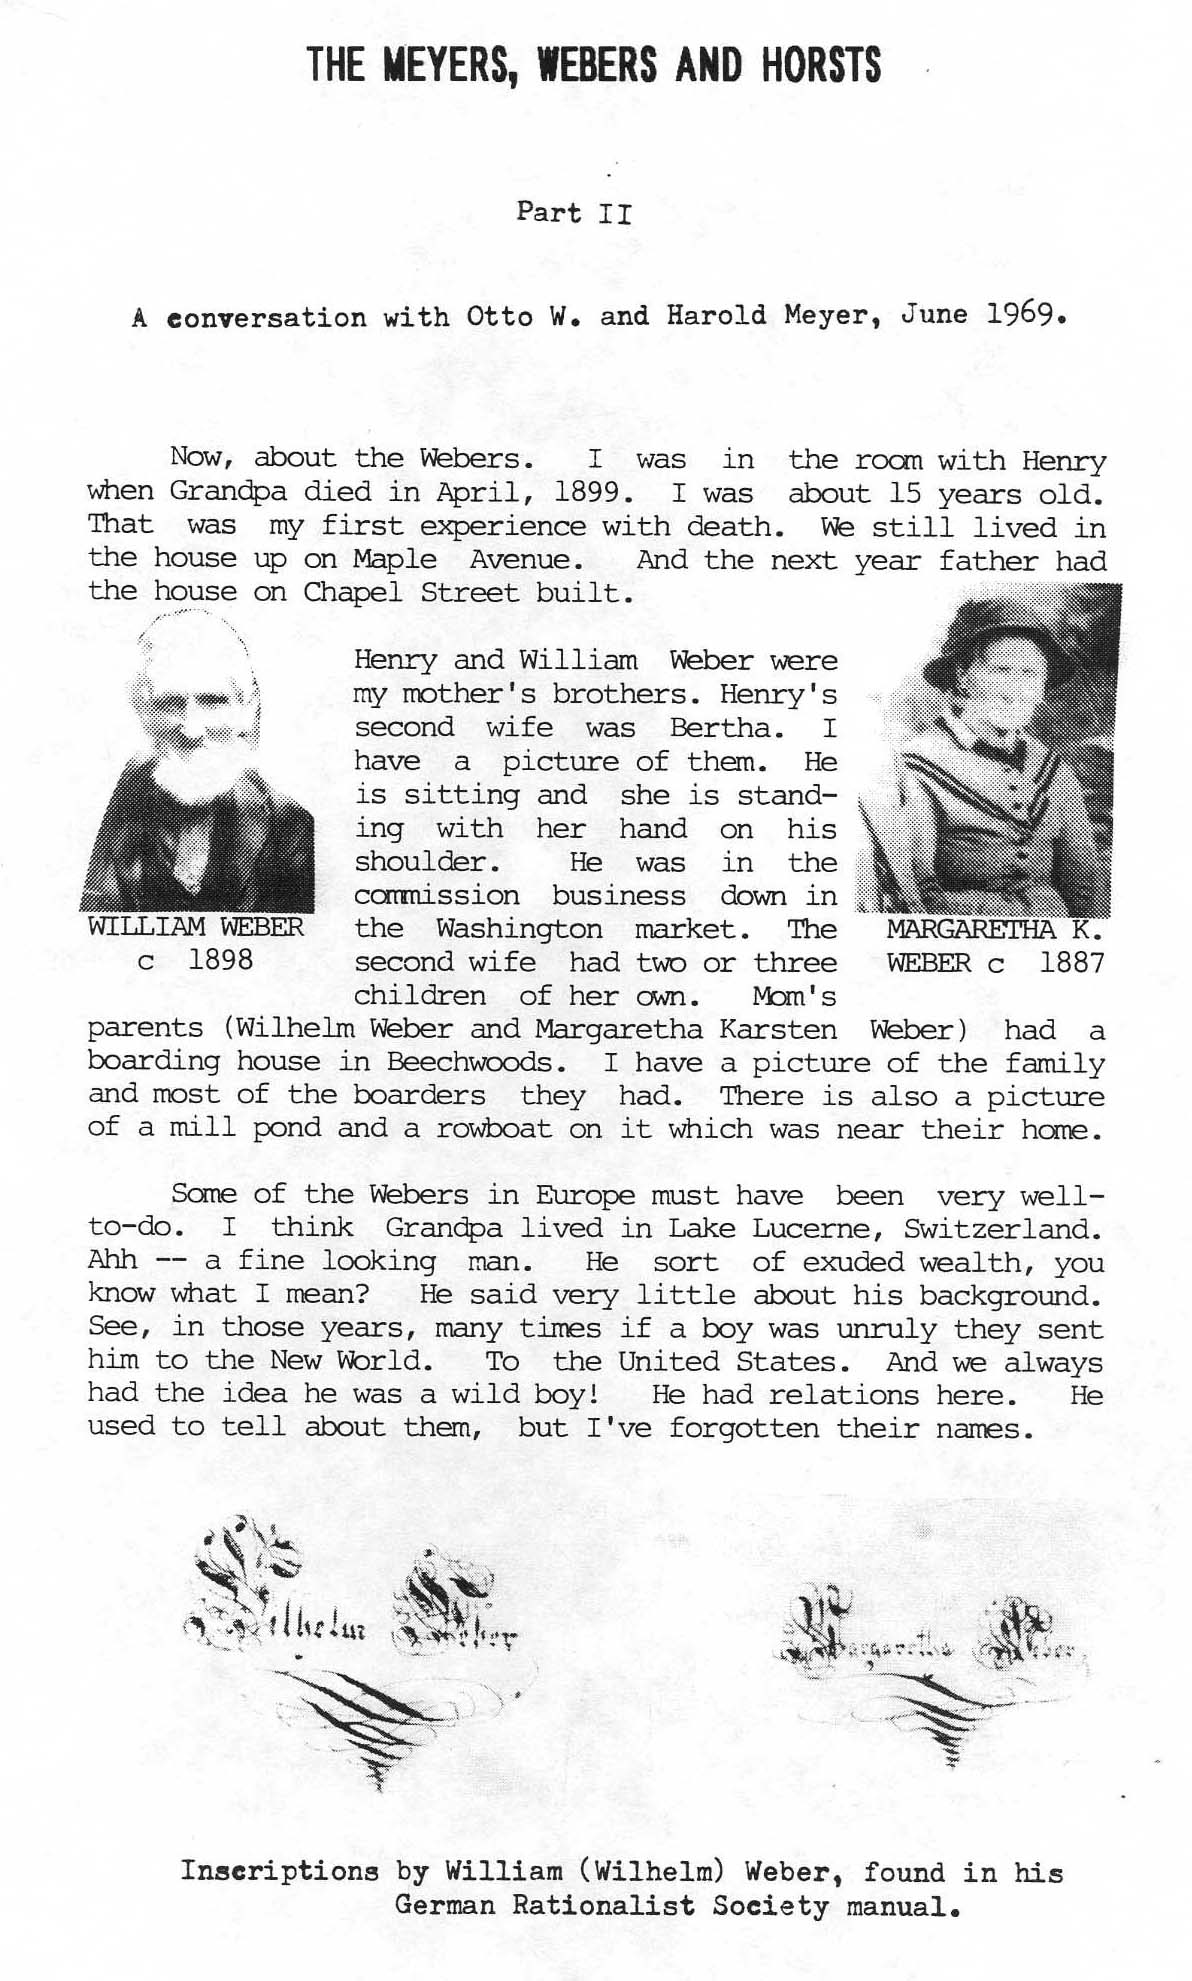 THE MEYERS, WEBERS AND HORSTS
Part II
A conversation with Otto W. and Harold Meyer, June 1969.
Now, about the Webers. I was in the room with Henry
when Grandpa died in April, 1899. I was about 15 years old.
That was my first experience with death. We still lived in
the house up on Maple Avenue. And the next year father had
the house on Chapel Street built.
Henry and William Weber were
my mother's brothers. Henry's
second wife was Bertha. I
have a picture of them. He
is sitting and she is stand-
ing with her hand on his
shoulder. He was in the
commission business down in
the Washington market. The
second wife had two or three
children of her own. Mom's
WILLIAM WEBER
c 1898
MARGARETHA K.
WEBER c 1887
parents (Wilhelm Weber and Margaretha Karsten Weber) had a
boarding house in Beechwoods. I have a picture of the family
and most of the boarders they had. There is also a picture
of a mill pond and a rowboat on it which was near their home.
Some of the Webers in Europe must have been very well-
to-do. I think Grandpa lived in Lake Lucerne, Switzerland.
Ahh -- a fine looking man. He sort of exuded wealth, you
know what I mean? He said very little about his background.
See, in those years, many times if a boy was unruly they sent
him to the New World. To the United States. And we always
had the idea he was a wild boy! He had relations here. He
used to tell about them, but I've forgotten their names.
Wilhelm Weber
Margaretha Weber
Inscriptions by William (Wilhelm) Weber, found in his
German Rationalist Society manual.